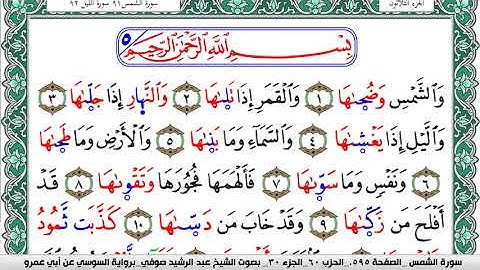 الجزء الثلاثون سورة الشمس ٩١ سورة الليل ٩٢
بِسْمِ اللَّهِ الرَّحْمَٰنِ الرَّحِيمِ
وَالشَّمْسِ وَضُحَىٰهَا ١ وَالْقَمَرِ إِذَا تَلَىٰهَا ٢ وَالنَّهَارِ إِذَا جَلَّىٰهَا ٣
وَالَّيْلِ إِذَا يَغْشَىٰهَا ٤ وَالسَّمَآءِ وَمَا بَنَىٰهَا ٥ وَالْأَرْضِ وَمَا طَحَىٰهَا
٦ وَنَفْسٍ وَمَا سَوَّىٰهَا ٧ فَأَلْهَمَهَا فُجُورَهَا وَتَقْوَىٰهَا ٨ قَدْ
أَفْلَحَ مَن زَكَّىٰهَا ٩ وَقَدْ خَابَ مَن دَسَّىٰهَا ١٠ كَذَّبَت ثَّمُودُ
سورة الشمس _الصفحة ٥٩٥_ الحزب ٦٠_ الجزء ٣٠_ بصوت الشيخ عبد الرشيد صوفي_ برواية السوسي عن أبي عمرو